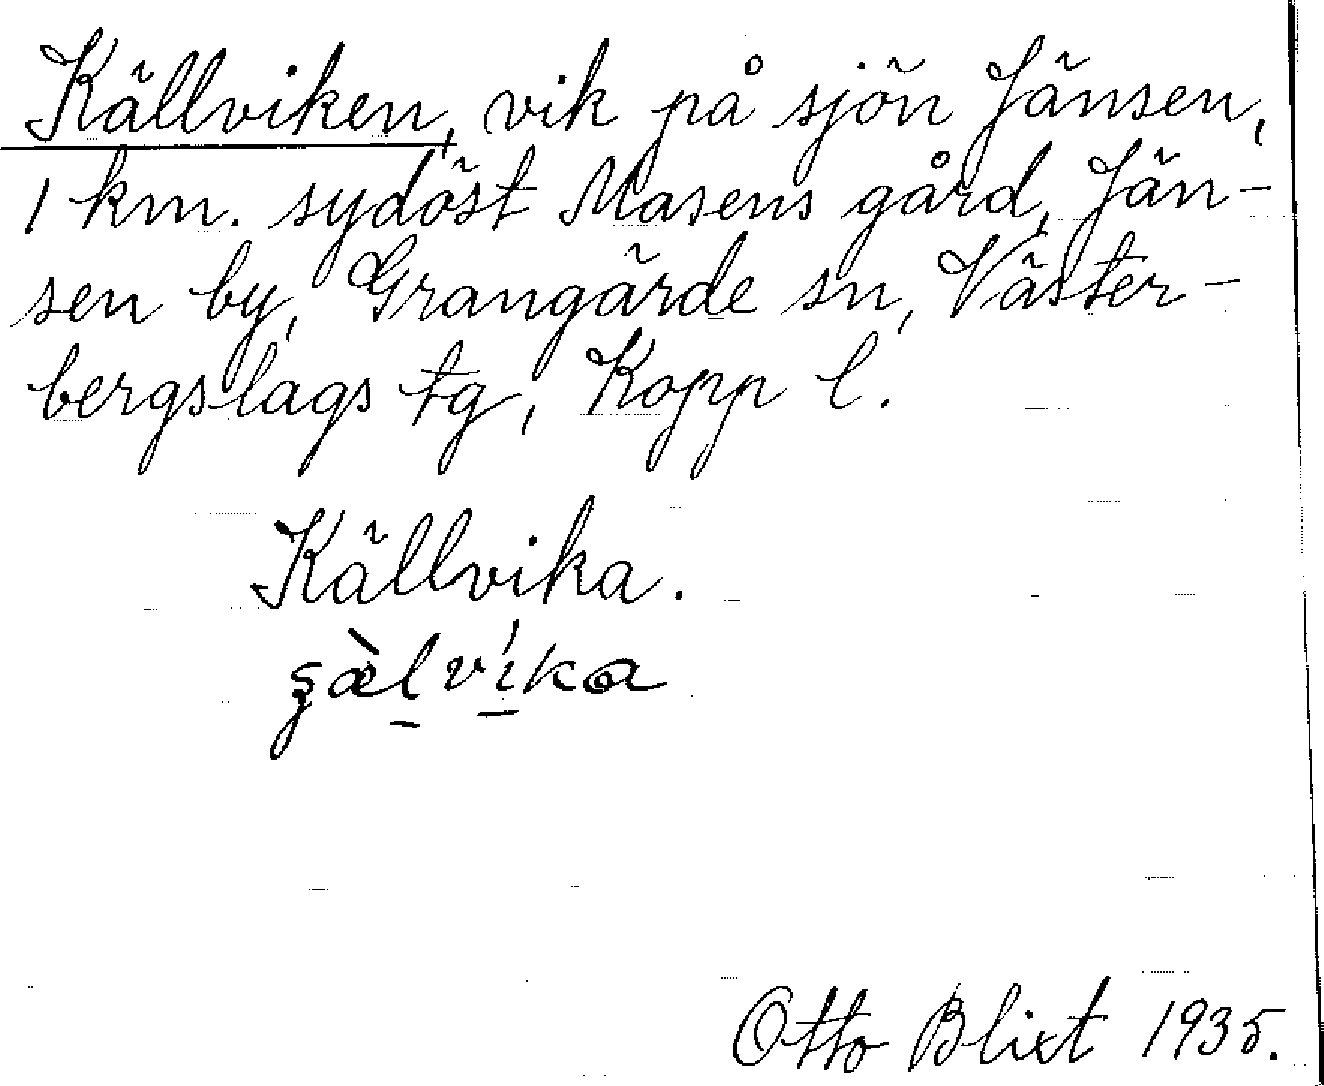 Källviken, vik på sjön Jänsen,
1 km. sydöst Masens gård, Jän-
sen by, Grangärde sn, Väster-
bergslags tg, Kopp l.
Källvika.
Otto Blixt 1935.